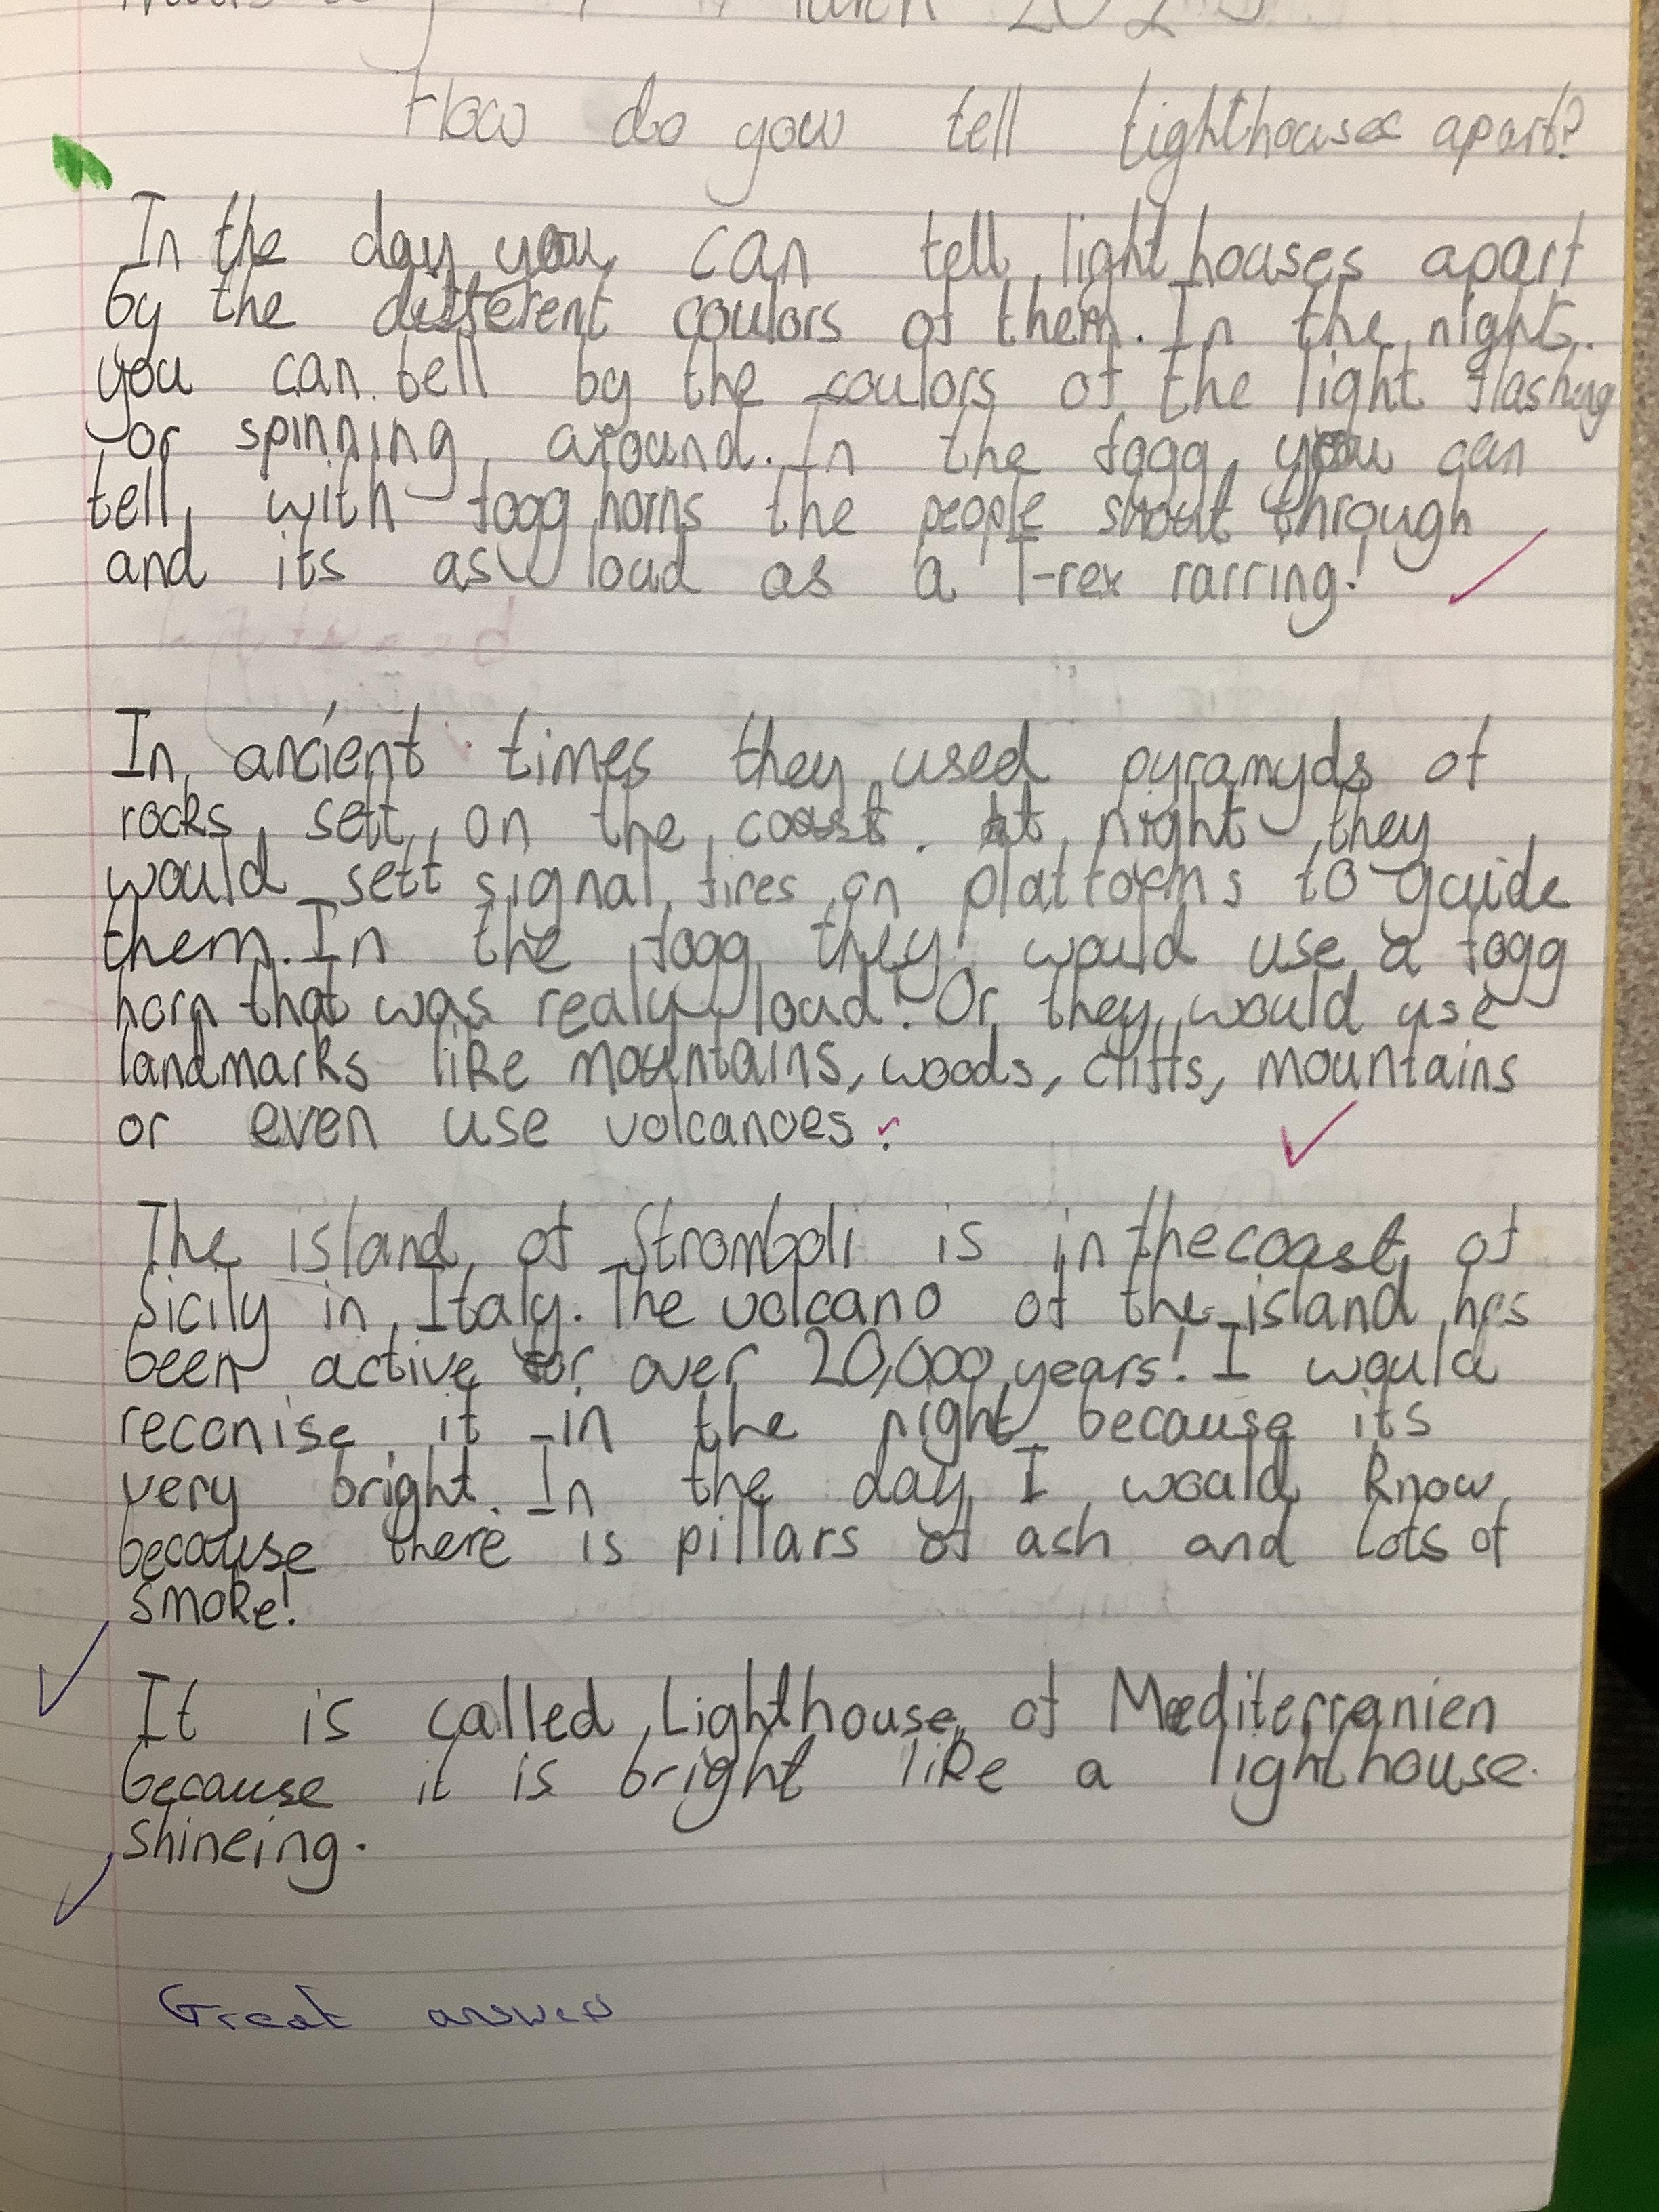 How do you tell lighthouses apart?
In the day you can tell lighthouses apart
by the different coulors of them. In the night
you can tell by the coulors of the light flashing
or spinning around. In the fogg you can
tell with fogg horns the people shout through
and its as loud as a T-rex rarring!
In ancient times they used pyramyds of
rocks sett on the coast. At night they
would sett signal fires on platforms to guide
them. In the fogg they would use a fogg
horn that was realy loud! Or they would use
landmarks like mountains, woods, cliffs, mountains
or even use volcanoes.
The island of Stromboli is in the coast of
Sicily in Italy. The volcano of the island has
been active for over 20,000 years! I would
reconise it in the night because its
very bright. In the day I would know
because there is pillars of ash and lots of
smoke!
It is called Lighthouse of Mediterranien
because it is bright like a lighthouse
shineing.
Great answer